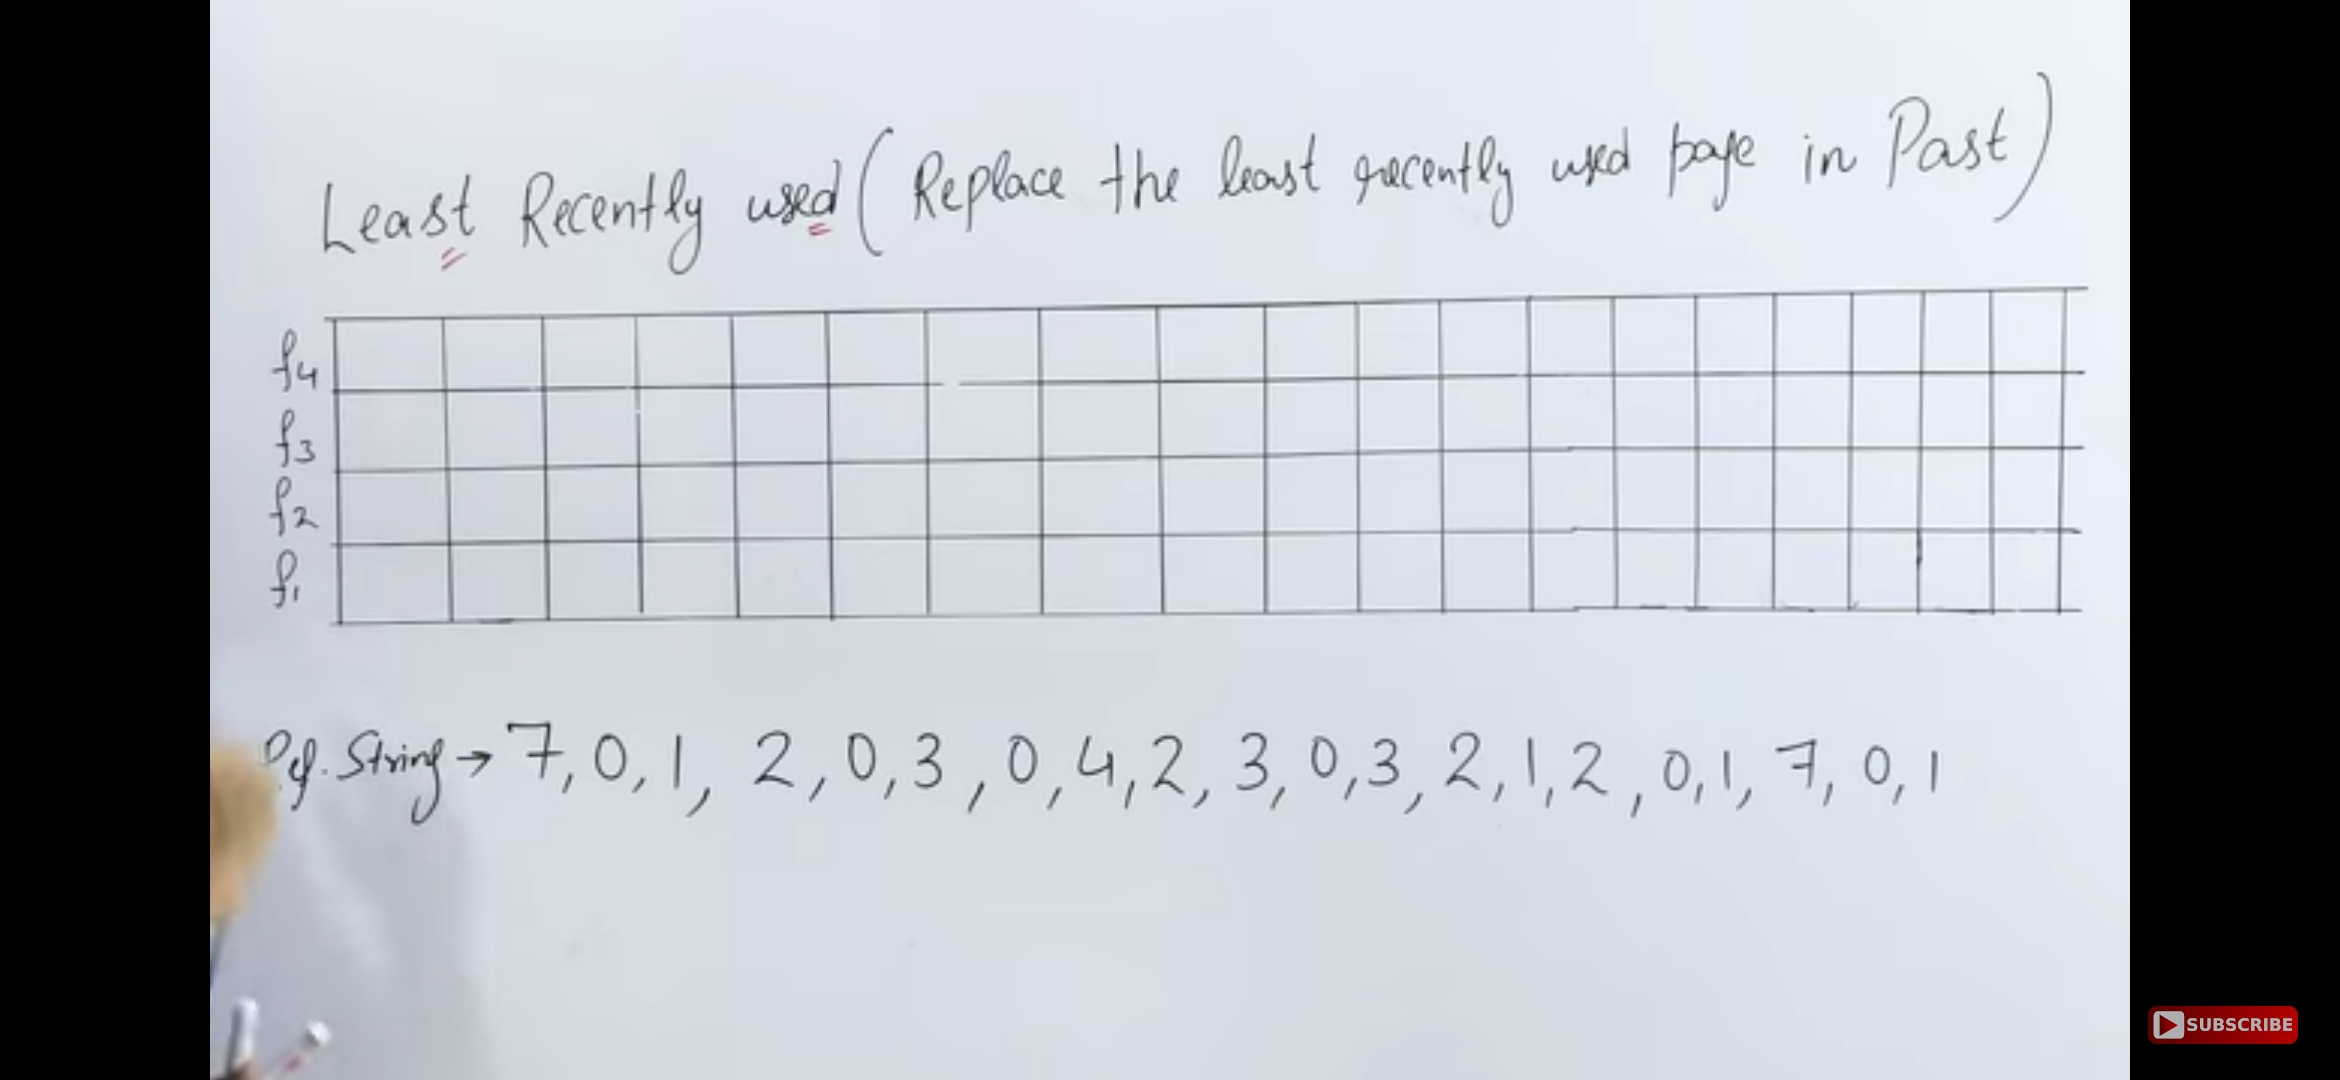 Least Recently used (Replace the least recently used page in Past)
f4
f3
f2
f1
Ref. String → 7, 0, 1, 2, 0, 3, 0, 4, 2, 3, 0, 3, 2, 1, 2, 0, 1, 7, 0, 1
SUBSCRIBE